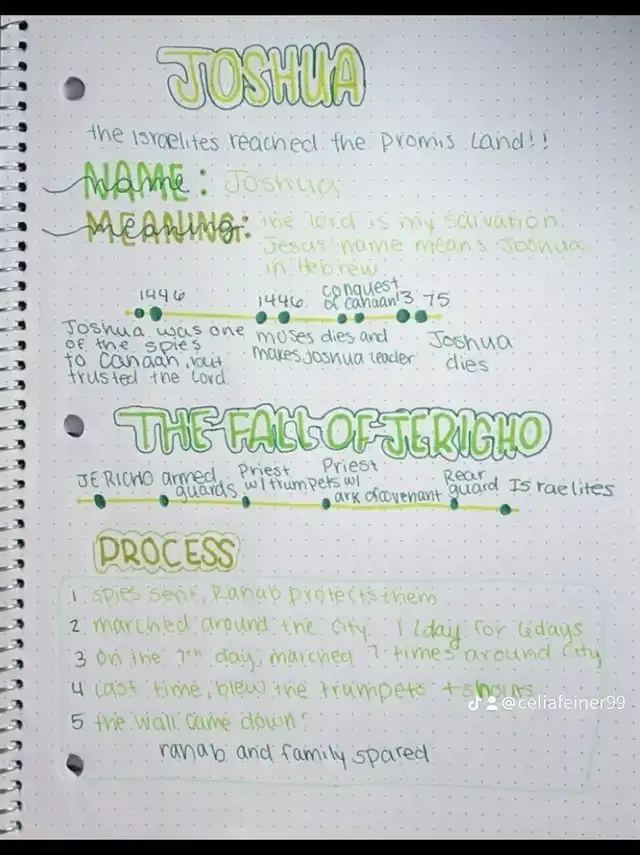 JOSHUA
the Israelites reached the promis Land!!
NAME: Joshua
MEANING: the lord is my salvation.
Jesus' name means Joshua
in Hebrew
1446
1446
conquest
of canaan
13 75
Joshua was one
of the spies
to Canaan, but
trusted the Lord
moses dies and
makes Joshua leader
Joshua
dies
THE FALL OF JERICHO
JERICHO
armed
guards
Priest
w/ trumpets
Priest
w/
ark of covenant
Rear
guard
Israelites
PROCESS
1 spies sent, Rahab protects them
2 marched around the city 1/day for 6 days
3 on the 7th day, marched 7 times around city
4 last time, blew the trumpets +
5 the wall came down!
rahab and family spared
@celiafeiner99